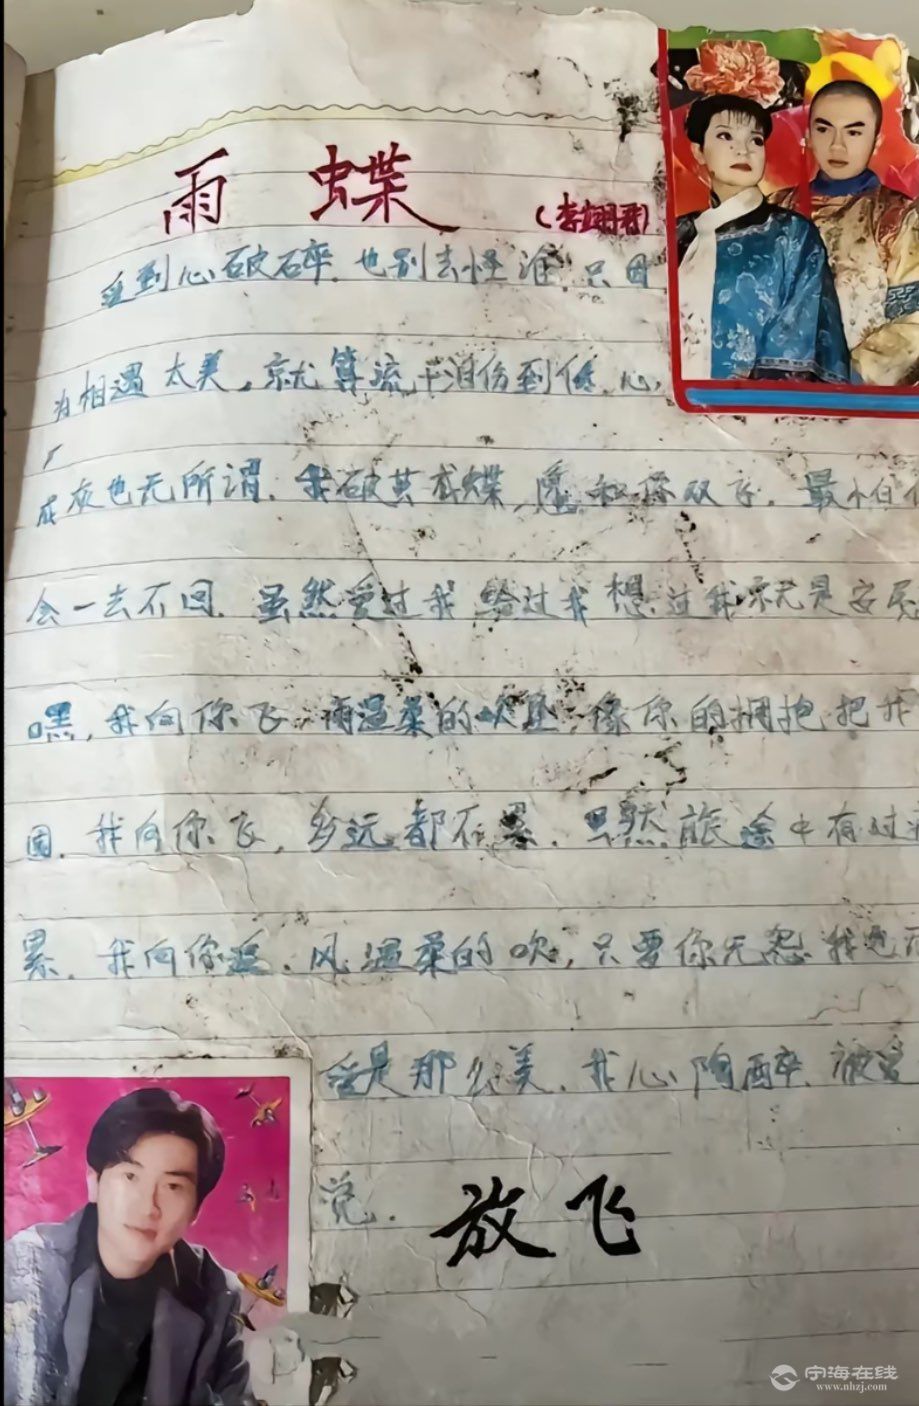 雨 蝶 (李翊君)
爱到心破碎.也别去怪谁.只因
为相遇太美,就算流干泪伤到底,心
成灰也无所谓.我破茧成蝶,愿和你双飞.最怕你
会一去不回.虽然爱过我给过我想过我就是安慰
嘿,我向你飞,雨温柔的坠,像你的拥抱把我
围.我向你飞,多远都不累.虽然旅途中有过
累.我向你追.风温柔的吹,只要你无怨我也
爱是那么美.我心陶醉.被爱
觉.
放飞
宁海在线
www.nhzj.com